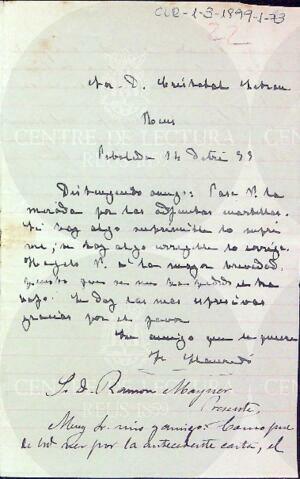 CLR-1-3-1899-1-73
22
Sor. D. Cristobal
Reus
14 99
Distinguido amigo: Pase V. la
mirada por las adjuntas cuartillas.
Si hay algo suprimible lo supri
me; si hay algo corregible lo corrige.
Hagalo V. a la mayor brevedad,
que me han pedido el tra
bajo. Le doy las mas espresivas
gracias por el favor
Su amigo que le quiere
CENTRE DE LECTURA
REUS 1859
Sr. D. Ramon Mayner
Presente,
Muy Sr. mio y amigo: Como pue
de Vd. ver por la antecedente carta, el